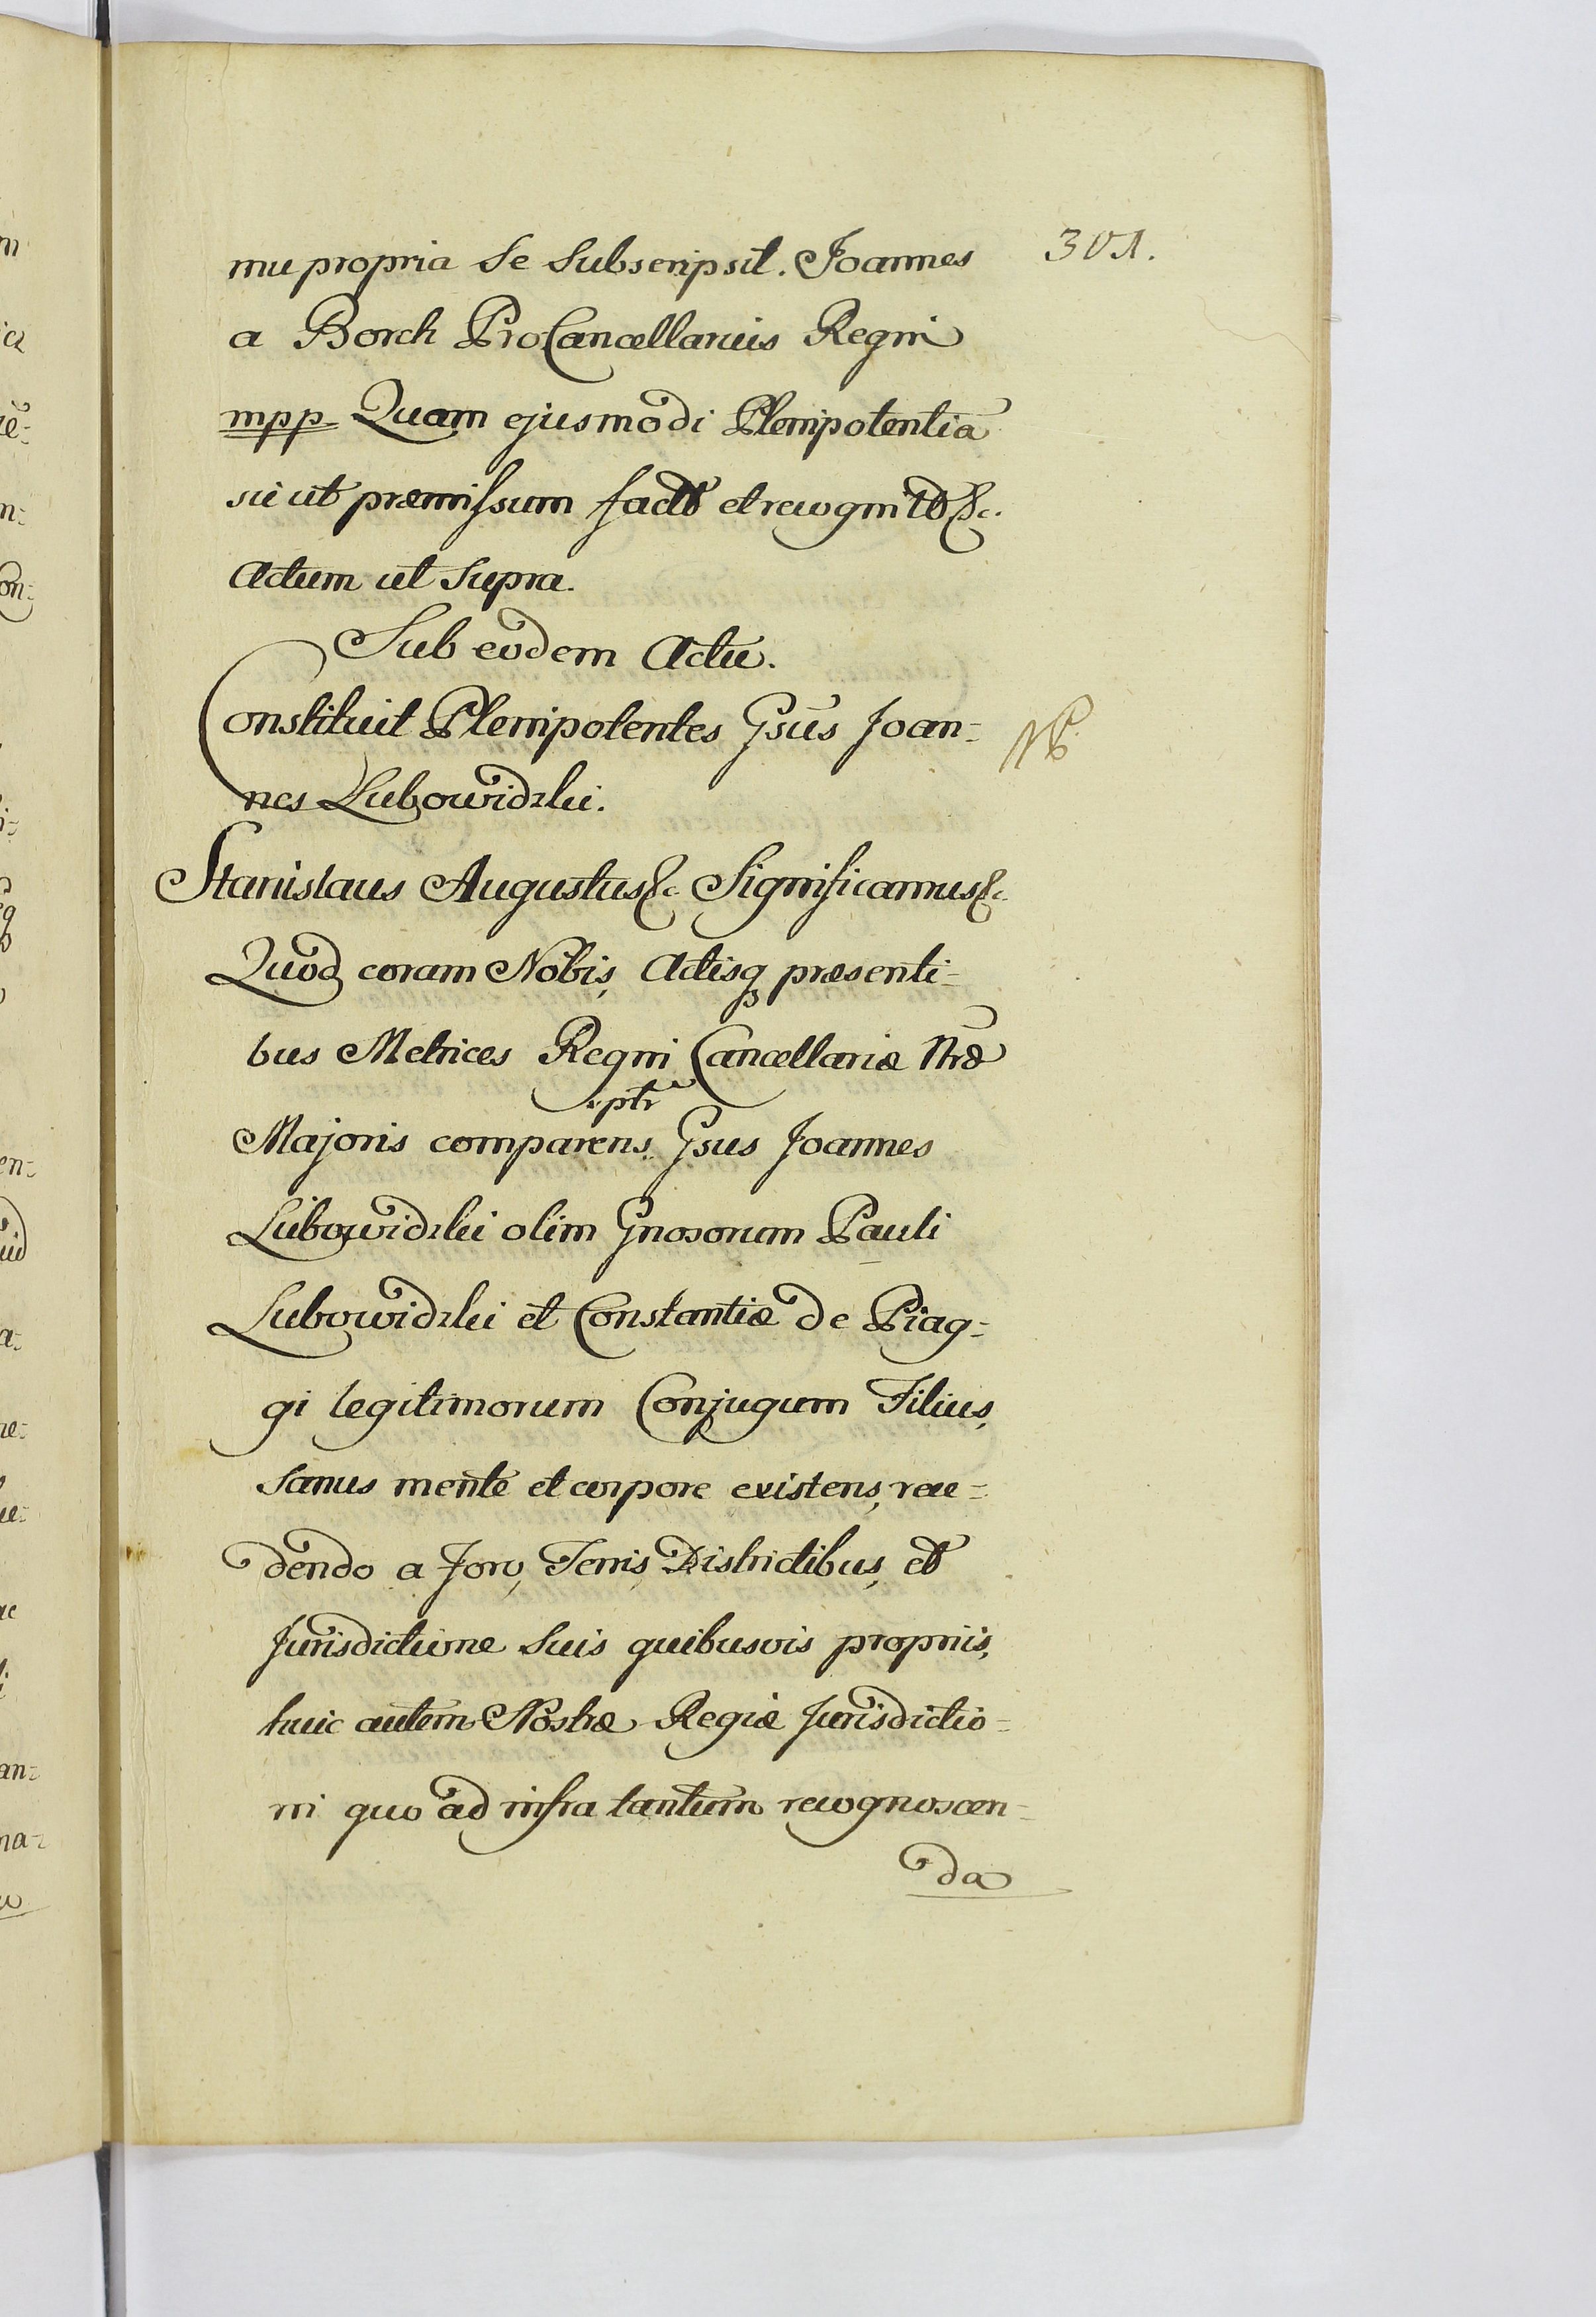 301.
mu propria se subscripsit. Joannes
a Borch ProCancellarius Regni
mpp. Quam ejusmodi Plenipotentiã
sicut præmissum factt et recognitt &c.
Actum ut supra.
Sub eodem Actu.
Constituit Plenipotentes Gsũs Joan=
NB
nes Lubowidzki.
Stanislaus Augustus &c. Significamus &c.
Quod coram Nobis, Actisq presenti=
bus Metrices Regni Cancellariæ Nræ
Majoris comparens ptr Gsus Joannes
Lubowidzki olim Gnosorum Pauli
Lubowidzki et Constantiæ de Piag=
gi legitimorum Conjugum Filius,
sanus mente et corpore existens, rece=
dendo a Foro, Terris, Districtibus, et
Jurisdictione suis quibusvis propriis,
huic autem Nostræ Regiæ Jurisdictio=
ni quo ad infra tantum recognoscen=
da